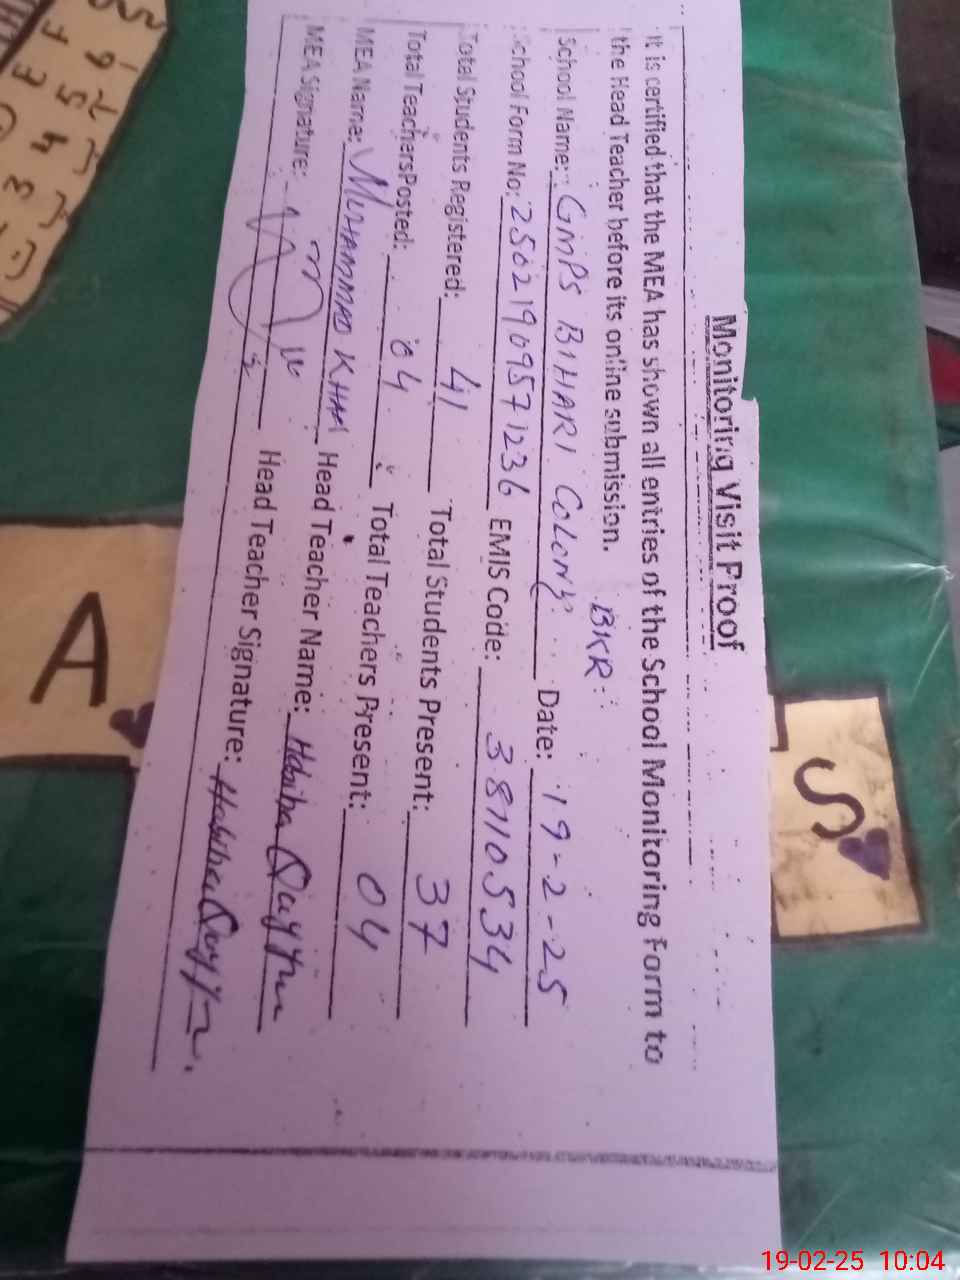 Monitoring Visit Proof
It is certified that the MEA has shown all entries of the School Monitoring Form to
the Head Teacher before its online submission. BKR:
School Name: GMPS BIHARI COLONY. Date: 19-2-25
School Form No: 25021909571236 EMIS Code: 38110534
Total Students Registered: 41 Total Students Present: 37
Total Teachers Posted: 04 Total Teachers Present: 04
MEA Name: MUHAMMAD KHAN Head Teacher Name: Habiba Qayyum
MEA Signature: Head Teacher Signature: Habiba Qayyum
A
S
E F
3 4 5 6
19-02-25 10:04